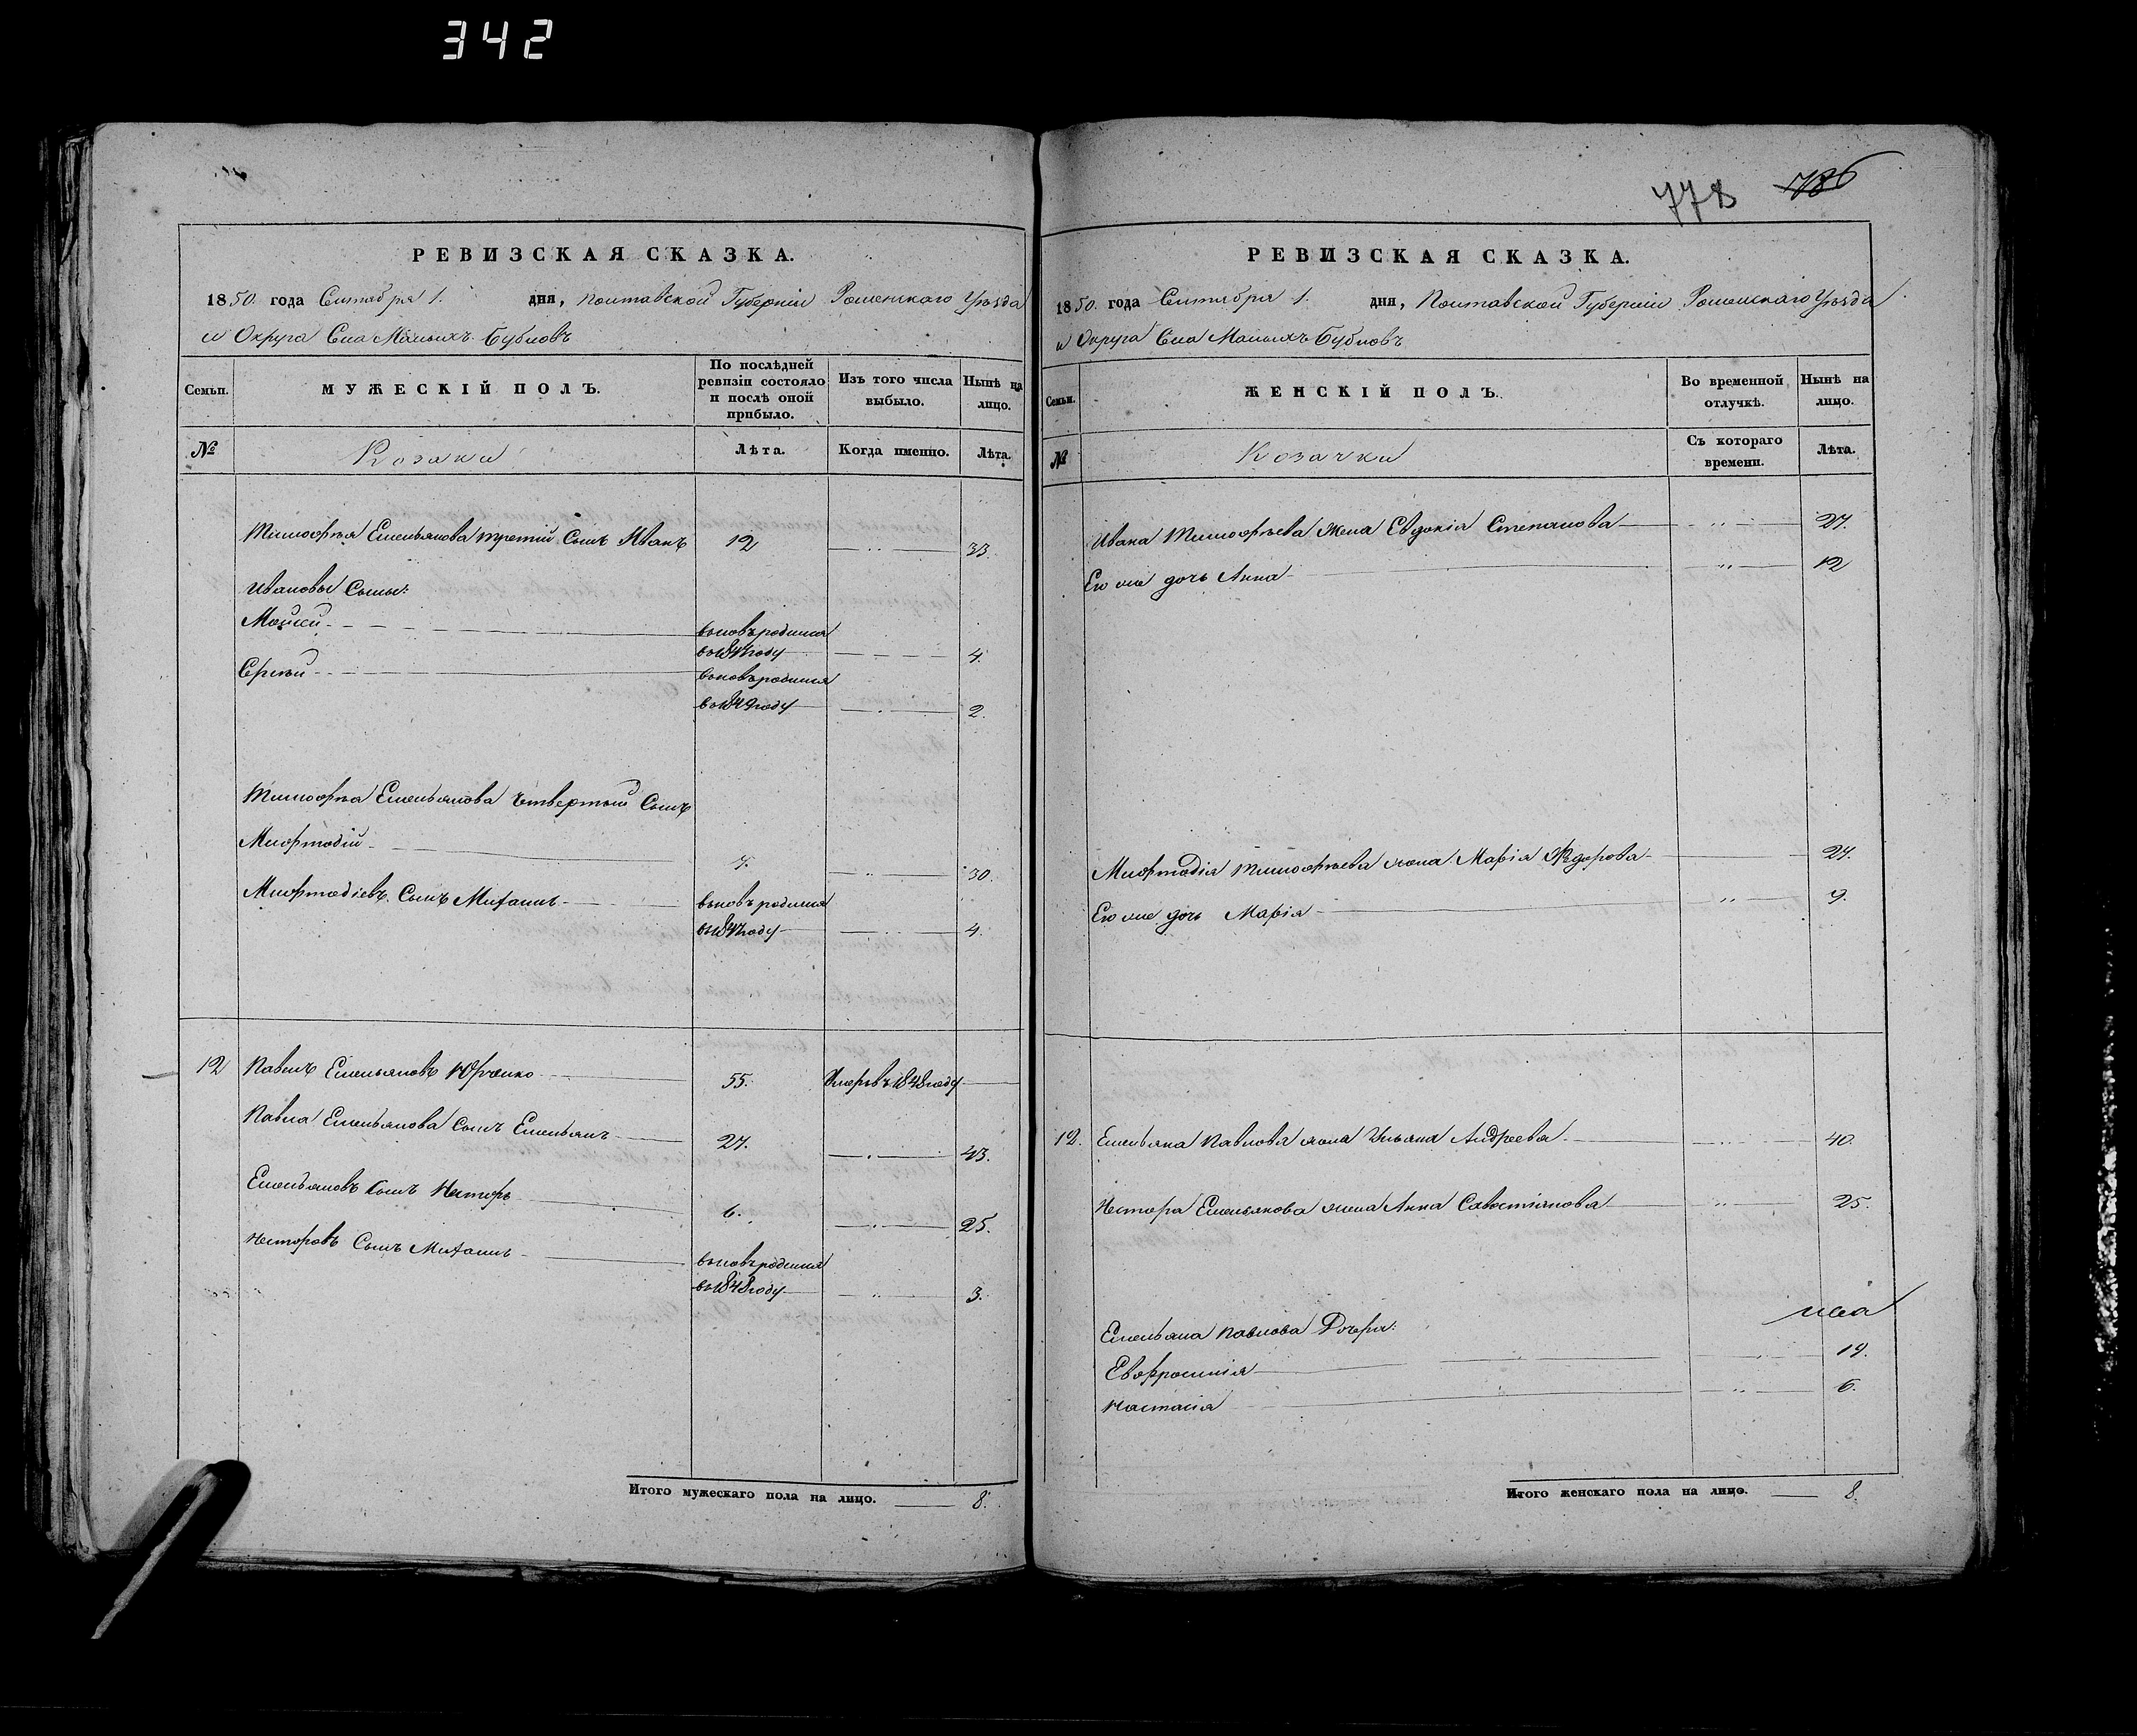 342
778 786
РЕВИЗСКАЯ СКАЗКА.
1850. года Сентября 1. дня, Полтавской Губерніи Роменскаго Уѣзда
и Округа Села Малыхъ Бубновъ
Семьи. МУЖЕСКІЙ ПОЛЪ. По послѣдней ревизіи состояло и послѣ оной прибыло. Изъ того числа выбыло. Нынѣ на лицо.
№ Козаки Лѣта. Когда именно. Лѣта.
Тимофея Емельянова третій Сынъ Иванъ 12 33.
Ивановы Сыны:
Мойсей вновь родился
въ 1847 году 4.
Сергѣй вновь родился
въ 1849 году 2.
Тимофея Емельянова четвертый Сынъ
Мефтодій 7. 30.
Мефтодіевъ Сынъ Михаилъ вновь родился
въ 1847 году 4.
12 Павелъ Емельяновъ Юрченко 55. Умеръ въ 1848 году
Павла Емельянова Сынъ Емельянъ 27. 43.
Емельяновъ Сынъ Несторъ 6. 25.
Несторовъ Сынъ Михаилъ вновь родился
въ 1848 году 3.
Итого мужескаго пола на лицо. 8.
РЕВИЗСКАЯ СКАЗКА.
1850. года Сентября 1. дня, Полтавской Губерніи Роменскаго Уѣзда
и Округа Села Малыхъ Бубновъ
Семьи. ЖЕНСКІЙ ПОЛЪ. Во временной отлучкѣ. Нынѣ на лицо.
№ Козачки Съ котораго времени. Лѣта.
Ивана Тимофѣева жена Евдокія Степанова 27.
Его же дочь Анна 12
Мефтодія Тимофѣева жена Марія Ѳедорова 27.
Его же дочь Марія 9.
12. Емельяна Павлова жена Ульяна Андреева 40.
Нестора Емельянова жена Анна Савостіянова 25.
Емельяна Павлова Дочери:
Евфросинія 19.
Настасія 6.
Итого женскаго пола на лицо. 8.